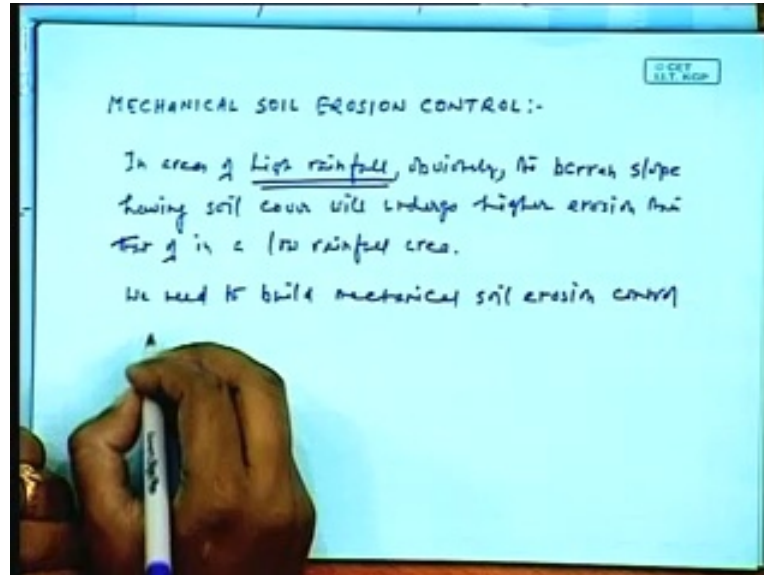 © CET
I.I.T. KGP
MECHANICAL SOIL EROSION CONTROL:-
In areas of high rainfall, obviously, the barren slope
having soil cover will undergo higher erosion than
that of in a low rainfall area.
We need to build mechanical soil erosion control